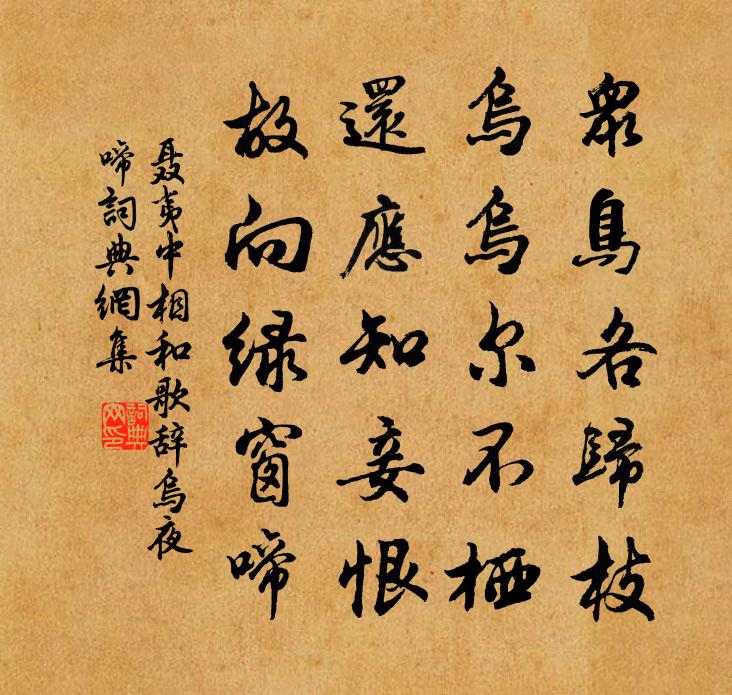 眾鳥各歸枝
烏烏尔不栖
還應知妾恨
故向緑窗啼
聶夷中相和歌辞烏夜
啼詞典網集
詞典
网印